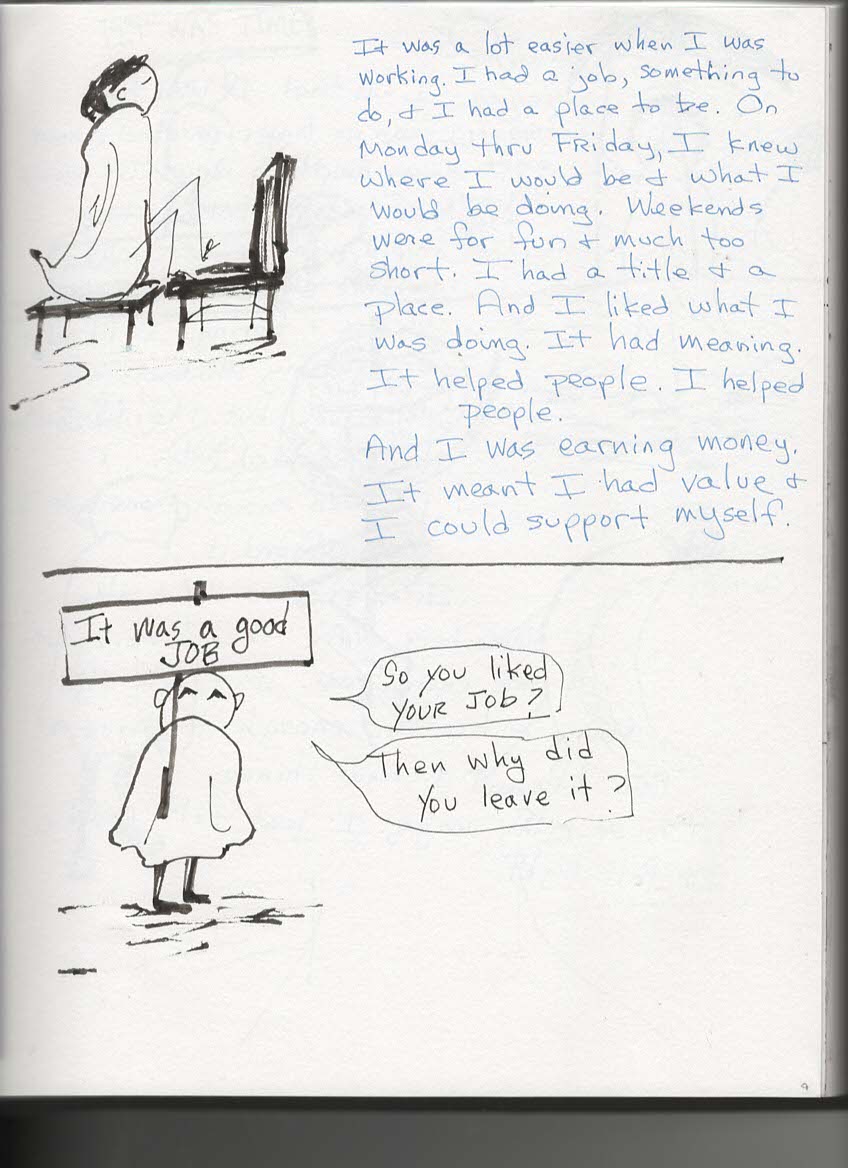 It was a lot easier when I was
working. I had a job, something to
do, & I had a place to be. On
Monday thru Friday, I knew
where I would be & what I
would be doing. Weekends
were for fun & much too
short. I had a title & a
place. And I liked what I
was doing. It had meaning.
It helped people. I helped
people.
And I was earning money.
It meant I had value &
I could support myself.
It was a good
JOB
So you liked
YOUR JOB?
Then why did
you leave it?